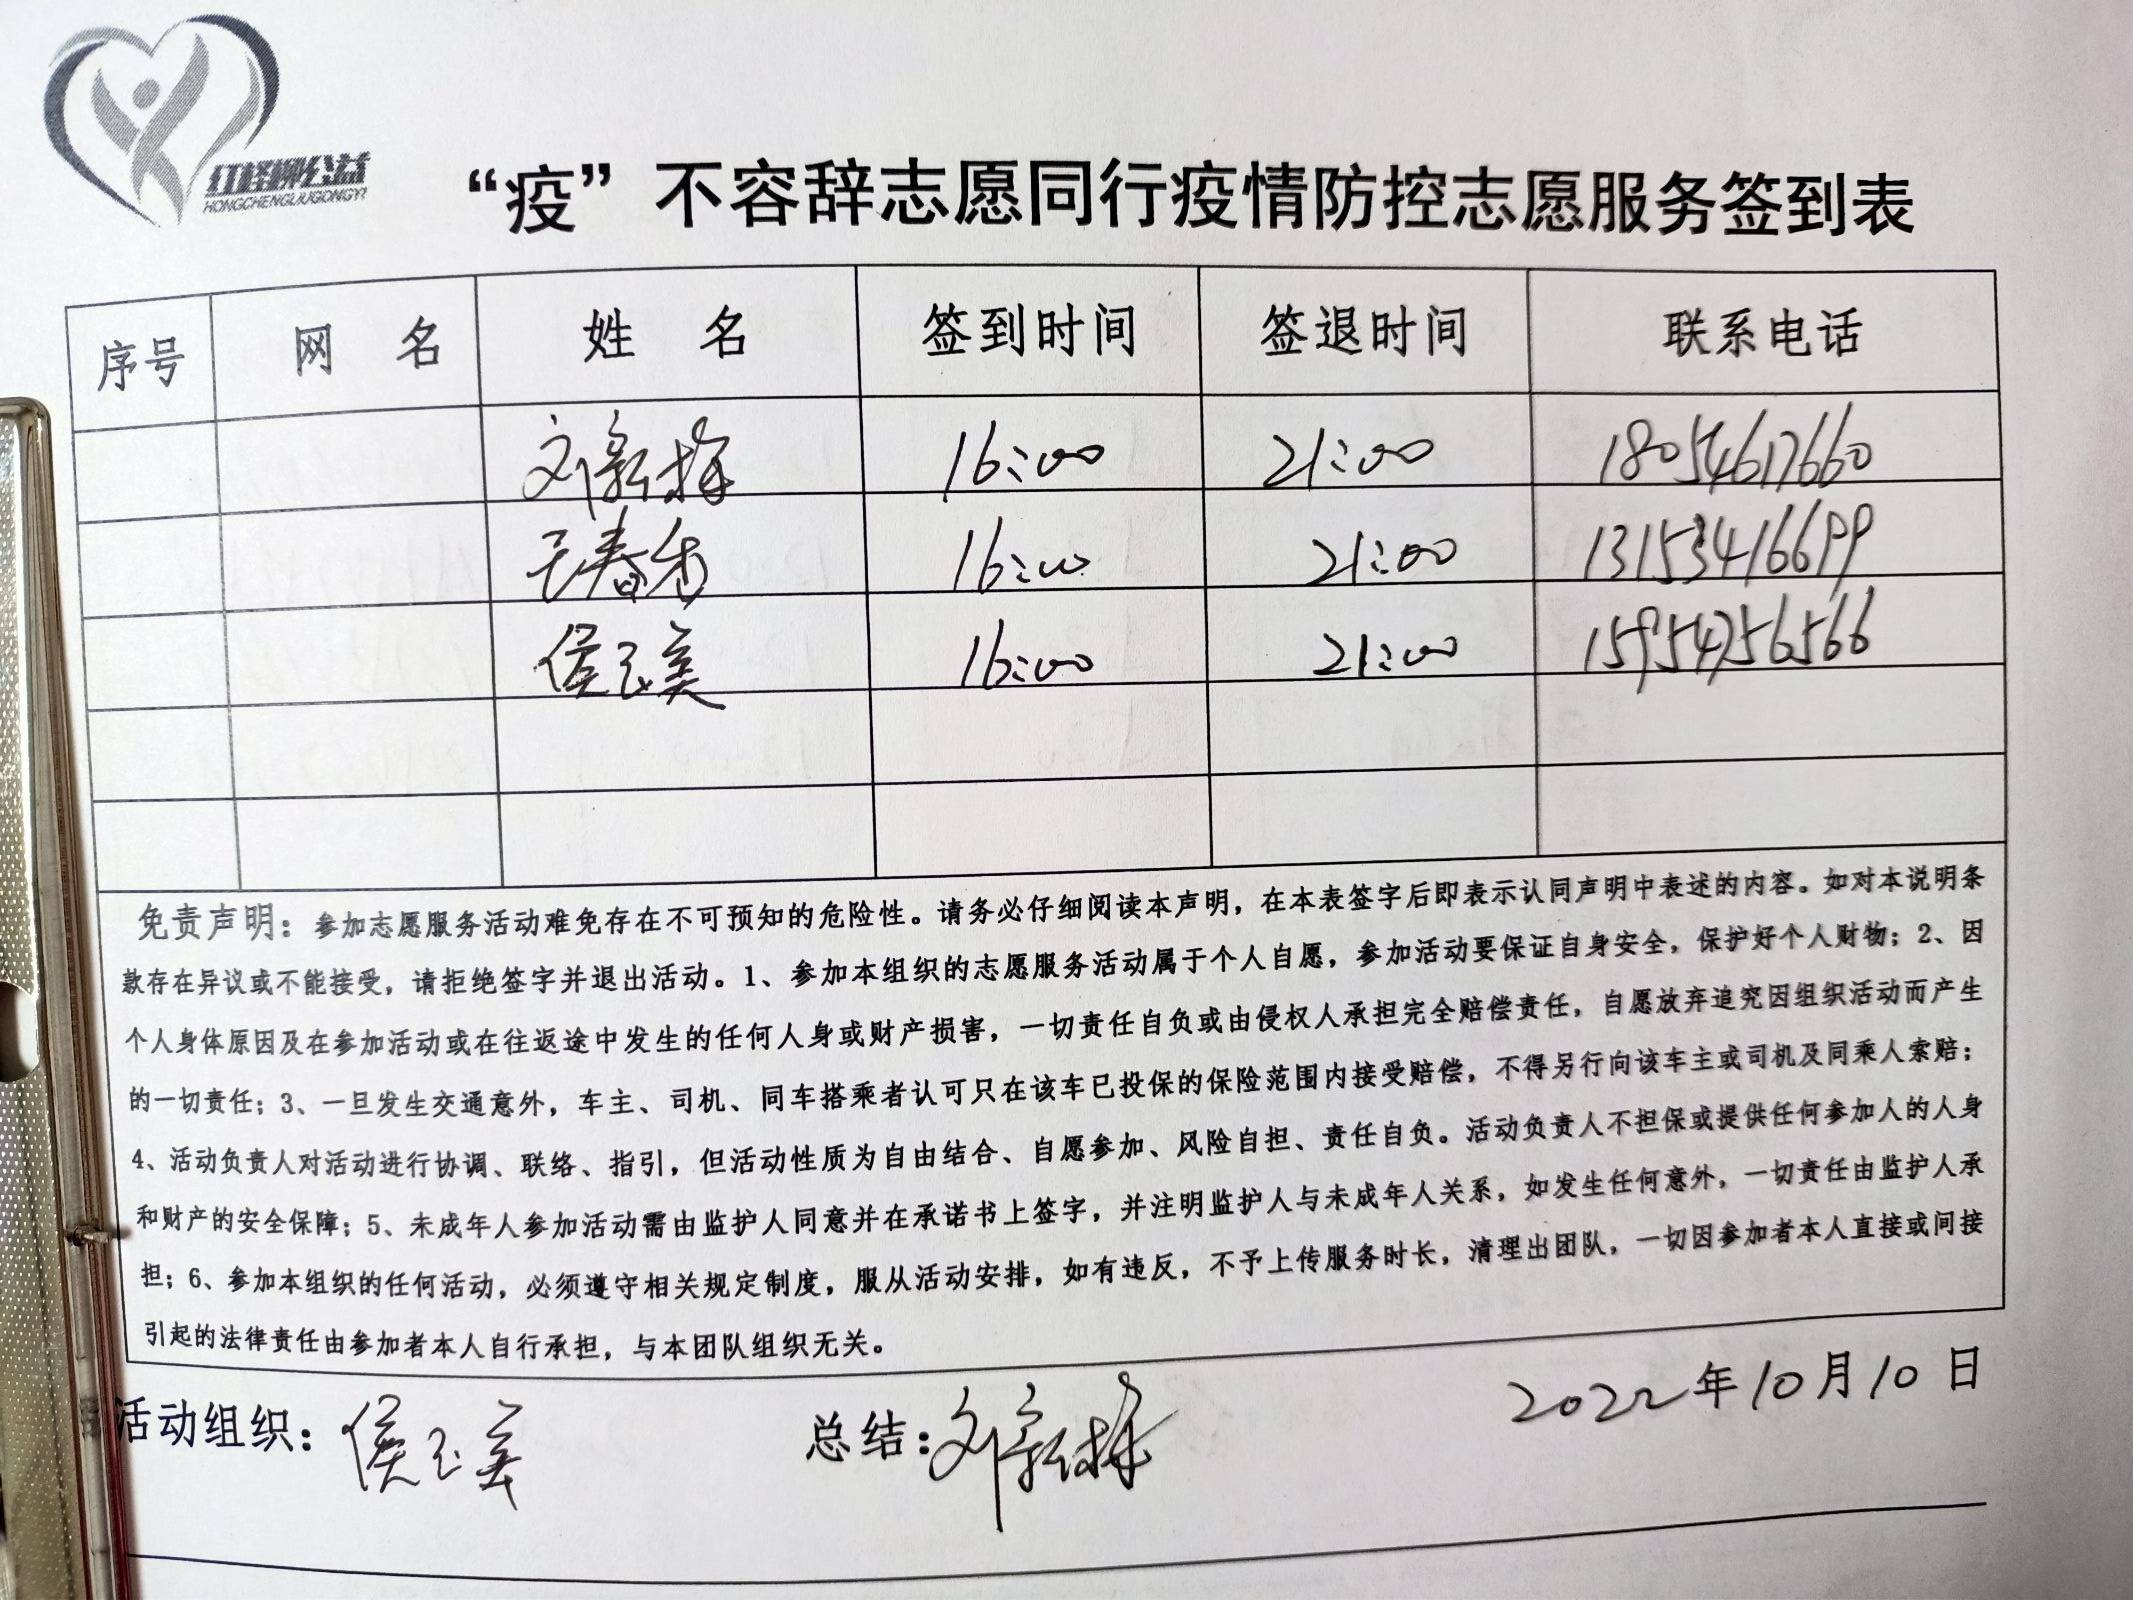 红柽柳公益
HONGCHENGLIUGONGYI
“疫”不容辞志愿同行疫情防控志愿服务签到表
序号 网 名 姓 名 签到时间 签退时间 联系电话
刘新梅 16:00 21:00 18054617660
王春 16:00 21:00 13153416699
侯玉美 16:00 21:00 15954756566
免责声明：参加志愿服务活动难免存在不可预知的危险性。请务必仔细阅读本声明，在本表签字后即表示认同声明中表述的内容。如对本说明条
款存在异议或不能接受，请拒绝签字并退出活动。1、参加本组织的志愿服务活动属于个人自愿，参加活动要保证自身安全，保护好个人财物；2、因
个人身体原因及在参加活动或在往返途中发生的任何人身或财产损害，一切责任自负或由侵权人承担完全赔偿责任，自愿放弃追究因组织活动而产生
的一切责任；3、一旦发生交通意外，车主、司机、同车搭乘者认可只在该车已投保的保险范围内接受赔偿，不得另行向该车主或司机及同乘人索赔；
4、活动负责人对活动进行协调、联络、指引，但活动性质为自由结合、自愿参加、风险自担、责任自负。活动负责人不担保或提供任何参加人的人身
和财产的安全保障；5、未成年人参加活动需由监护人同意并在承诺书上签字，并注明监护人与未成年人关系，如发生任何意外，一切责任由监护人承
担；6、参加本组织的任何活动，必须遵守相关规定制度，服从活动安排，如有违反，不予上传服务时长，清理出团队，一切因参加者本人直接或间接
引起的法律责任由参加者本人自行承担，与本团队组织无关。
活动组织：侯玉美 总结：刘新梅 2022年10月10日